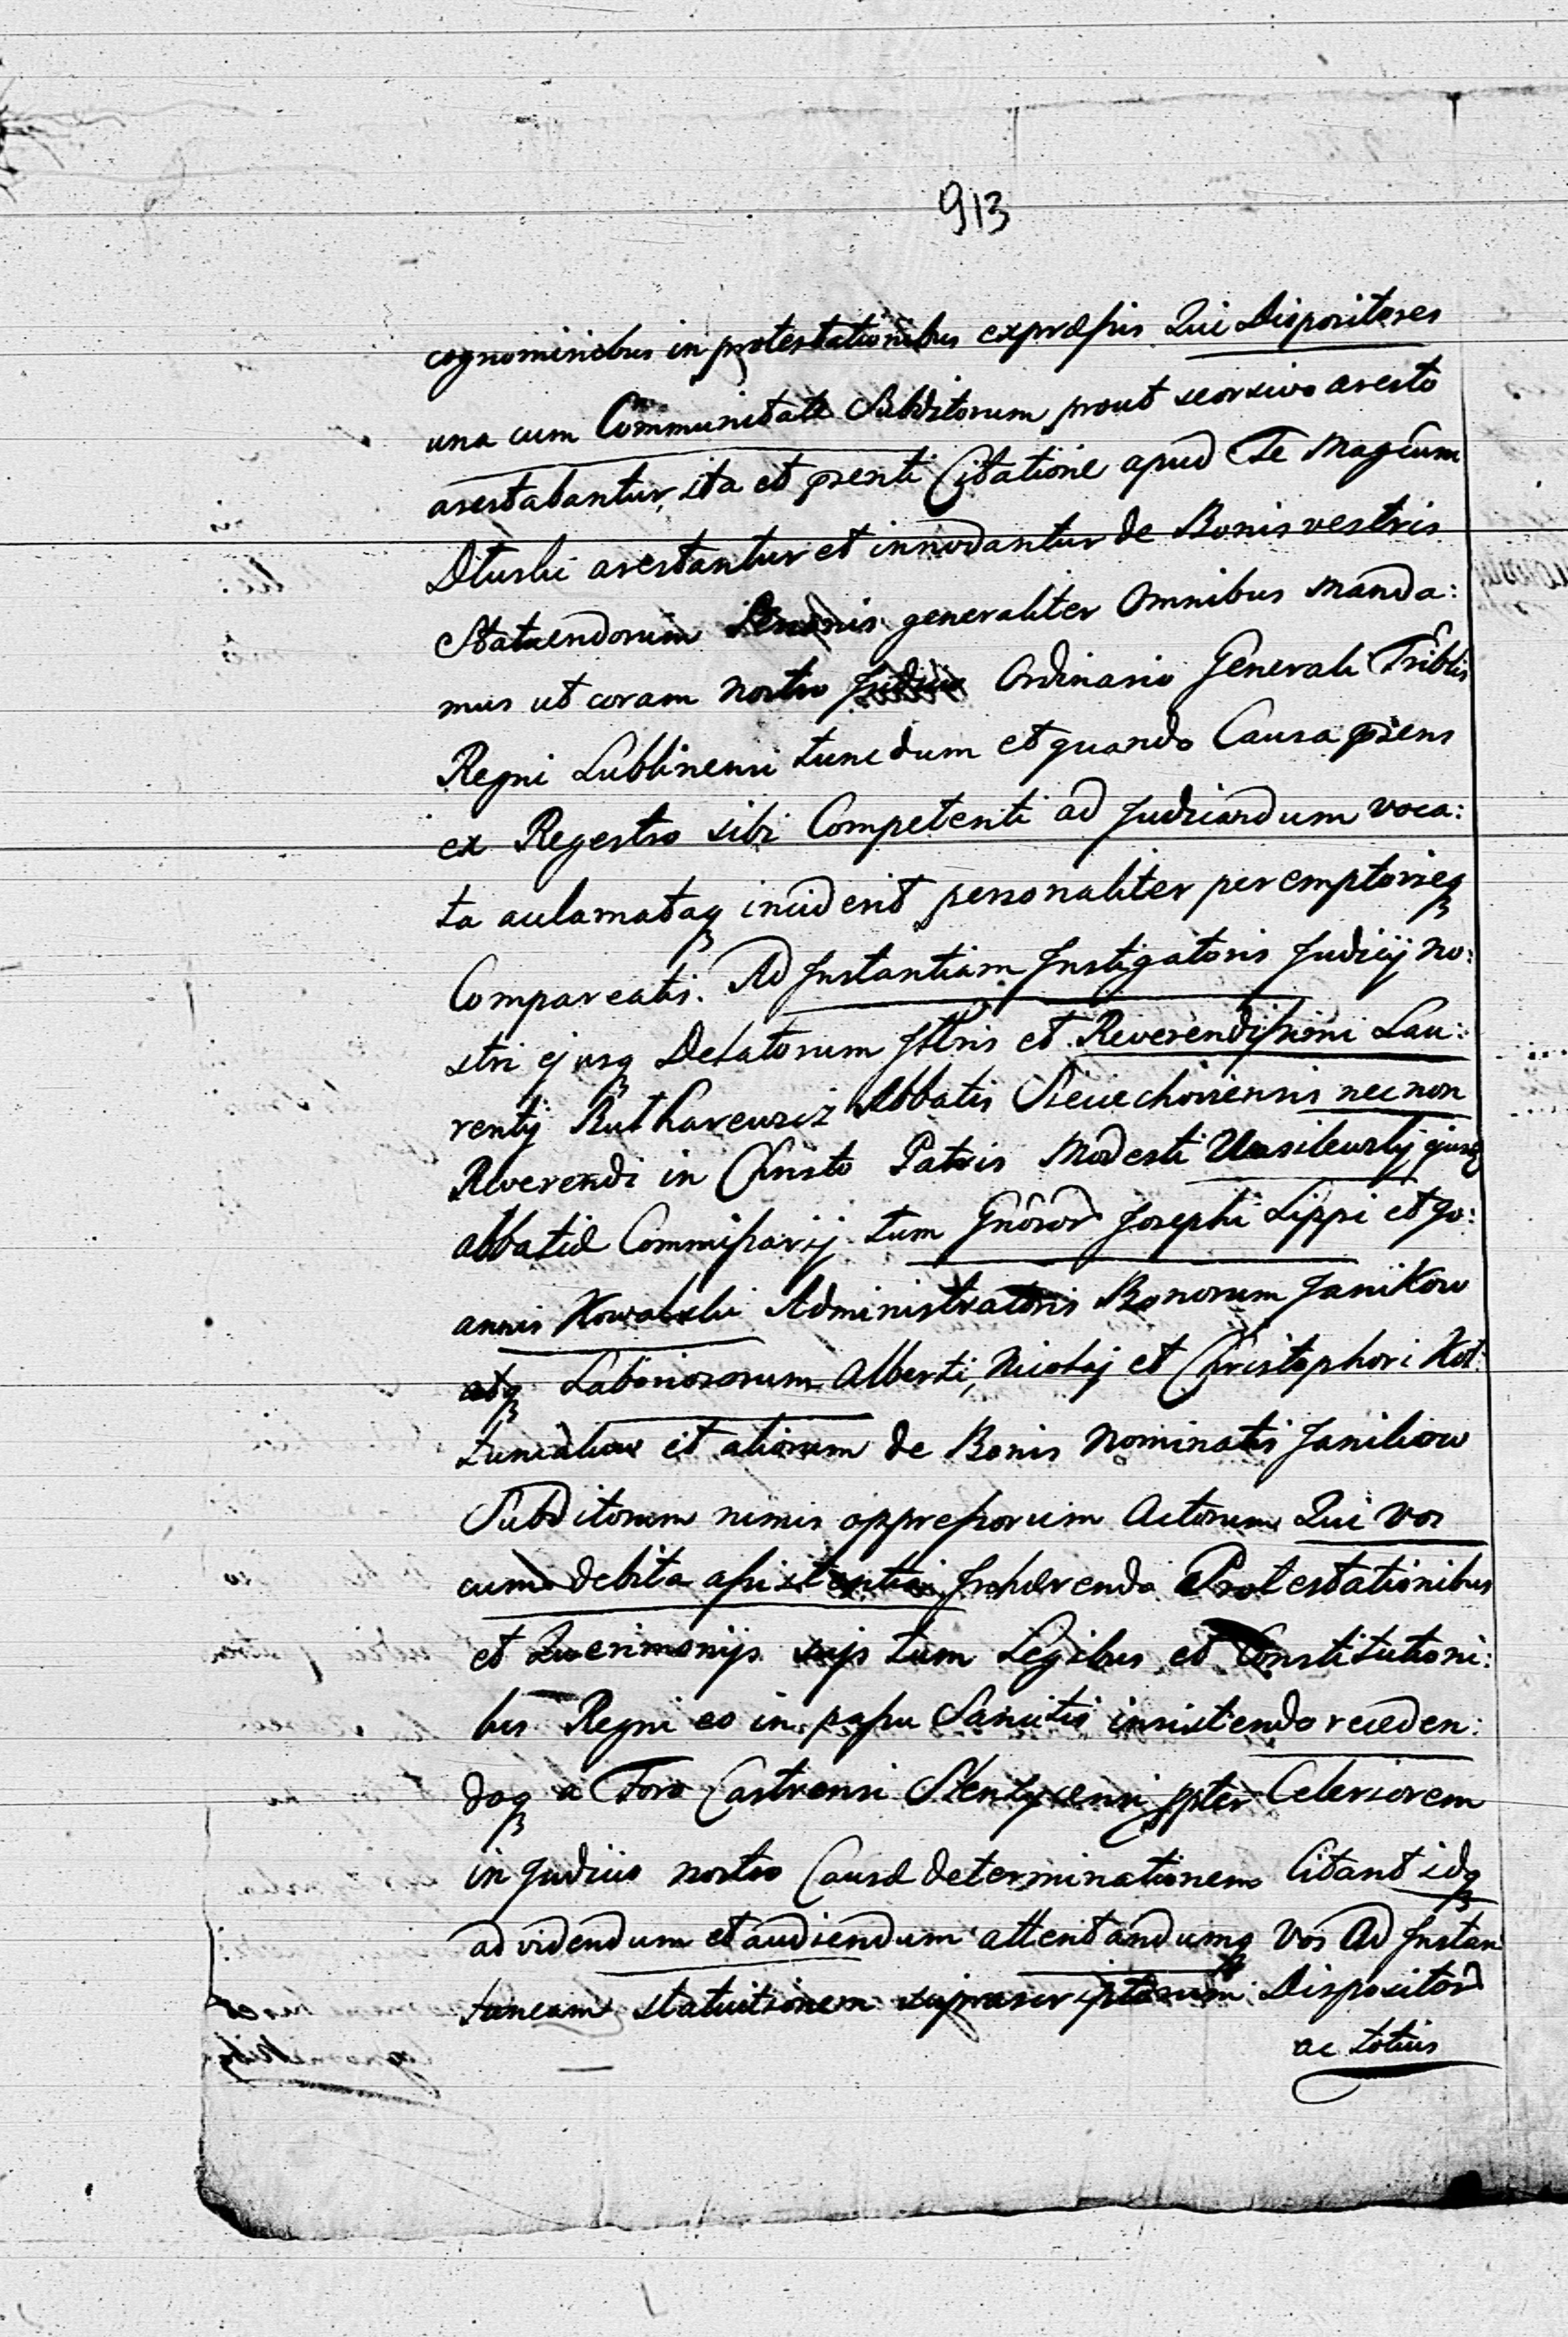 913
cognominibus in protestationibus expressis Qui Dispositores
una cum Communitate Subditorum prout seorsivo aresto
arestabantur, ita et pñenti Citatione apud Te Magcum
Dłuski arestantur et innodantur de Bonis vestris
Statuendorum generaliter Omnibus Manda:
mus ut coram Nostro Ordinario Generali Triblis
Regni Lublinensi tunc dum et quando Causa pñens
ex Regestro sibi Competenti ad Judicandum voca:
ta aclamataq inciderit personaliter peremptorieq
Compareatis. Ad Instantiam Instigatoris Judicij No:
stri ejusq Delatorum Illris et Reverendissimi Lau:
rentij Abbatis Sieciechoviensis necnon
Reverendi in Christo Patris Modesti Wasilewskij ejusq
abbatiæ Commissarij tum Gnõror Josephi Lippi et Jo:
annis Kowalski Administratoris Bonorum Janikow
atq Laboriosorum Alberti, Nicolaj et Christophori Kot:
et aliorum de Bonis Nominatis Janikow
Subditorum nimis oppressorum Actorum Qui Vos
cum debita assistentia Inhærendo Protestationibus
et Querimonijs sujs tum Legibus et Constitutioni:
bus Regni eo in passu Sancitis insistendo receden:
doq a Foro Castrensi Stenzycensi ppter Celeriorem
in Judicio nostro Causæ determinationem Citant idq
ad videndum et audiendum attentandumq Vos Ad Instan
taneam statuitionem suprascriptorum Dispositor
ac totius